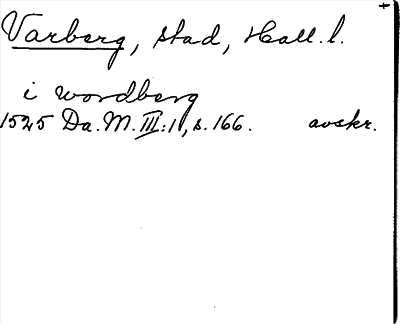 Varberg, stad, Hall. l.
i wordberg
1525 Da. M. III:1, s. 166. avskr.